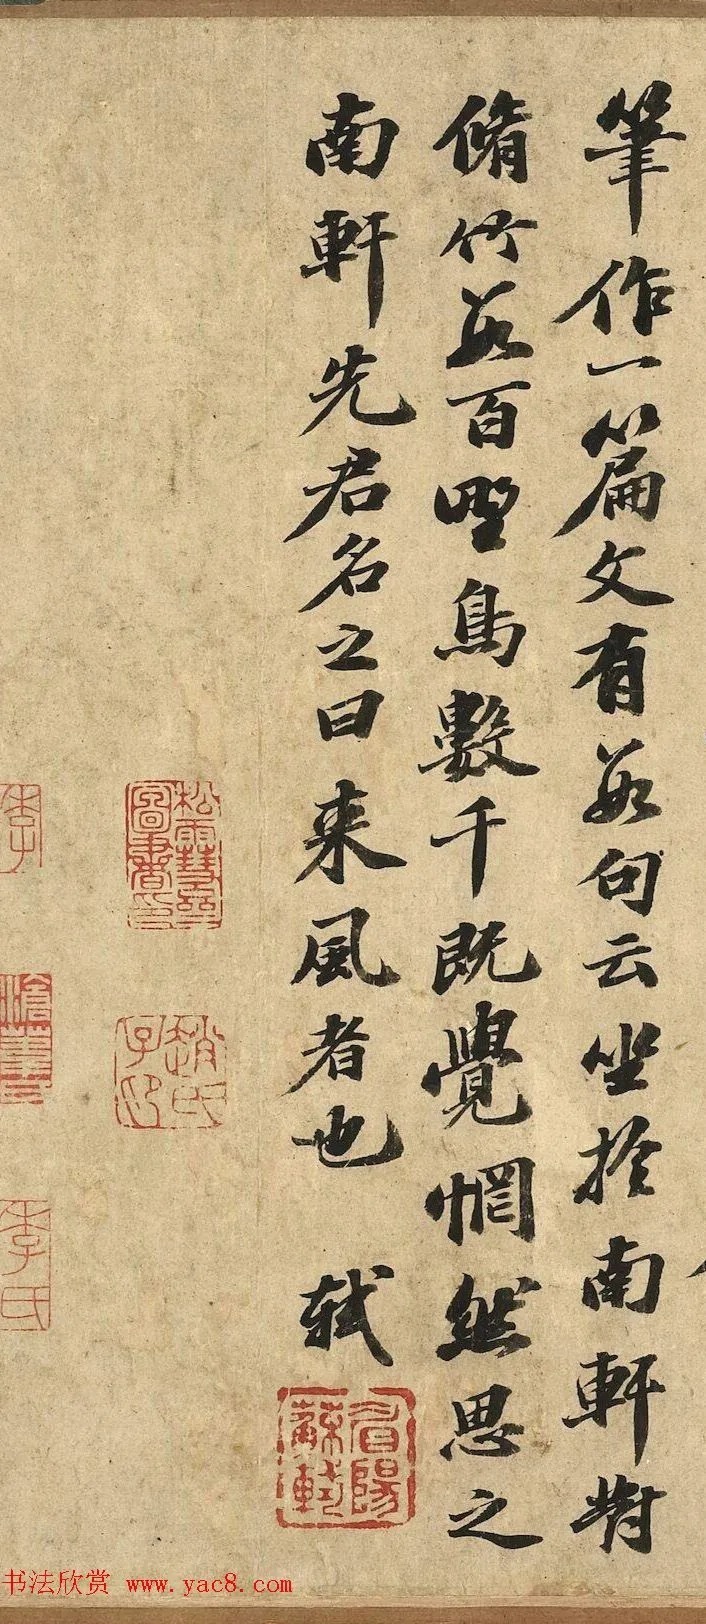 筆作一篇文有数句云坐於南軒對
脩竹数百野鳥數千既覺惘然思之
南軒先君名之曰来風者也 軾
眉陽蘇軾
松雪齋圖書印
趙氏子印
李氏
书法欣赏 www.yac8.com